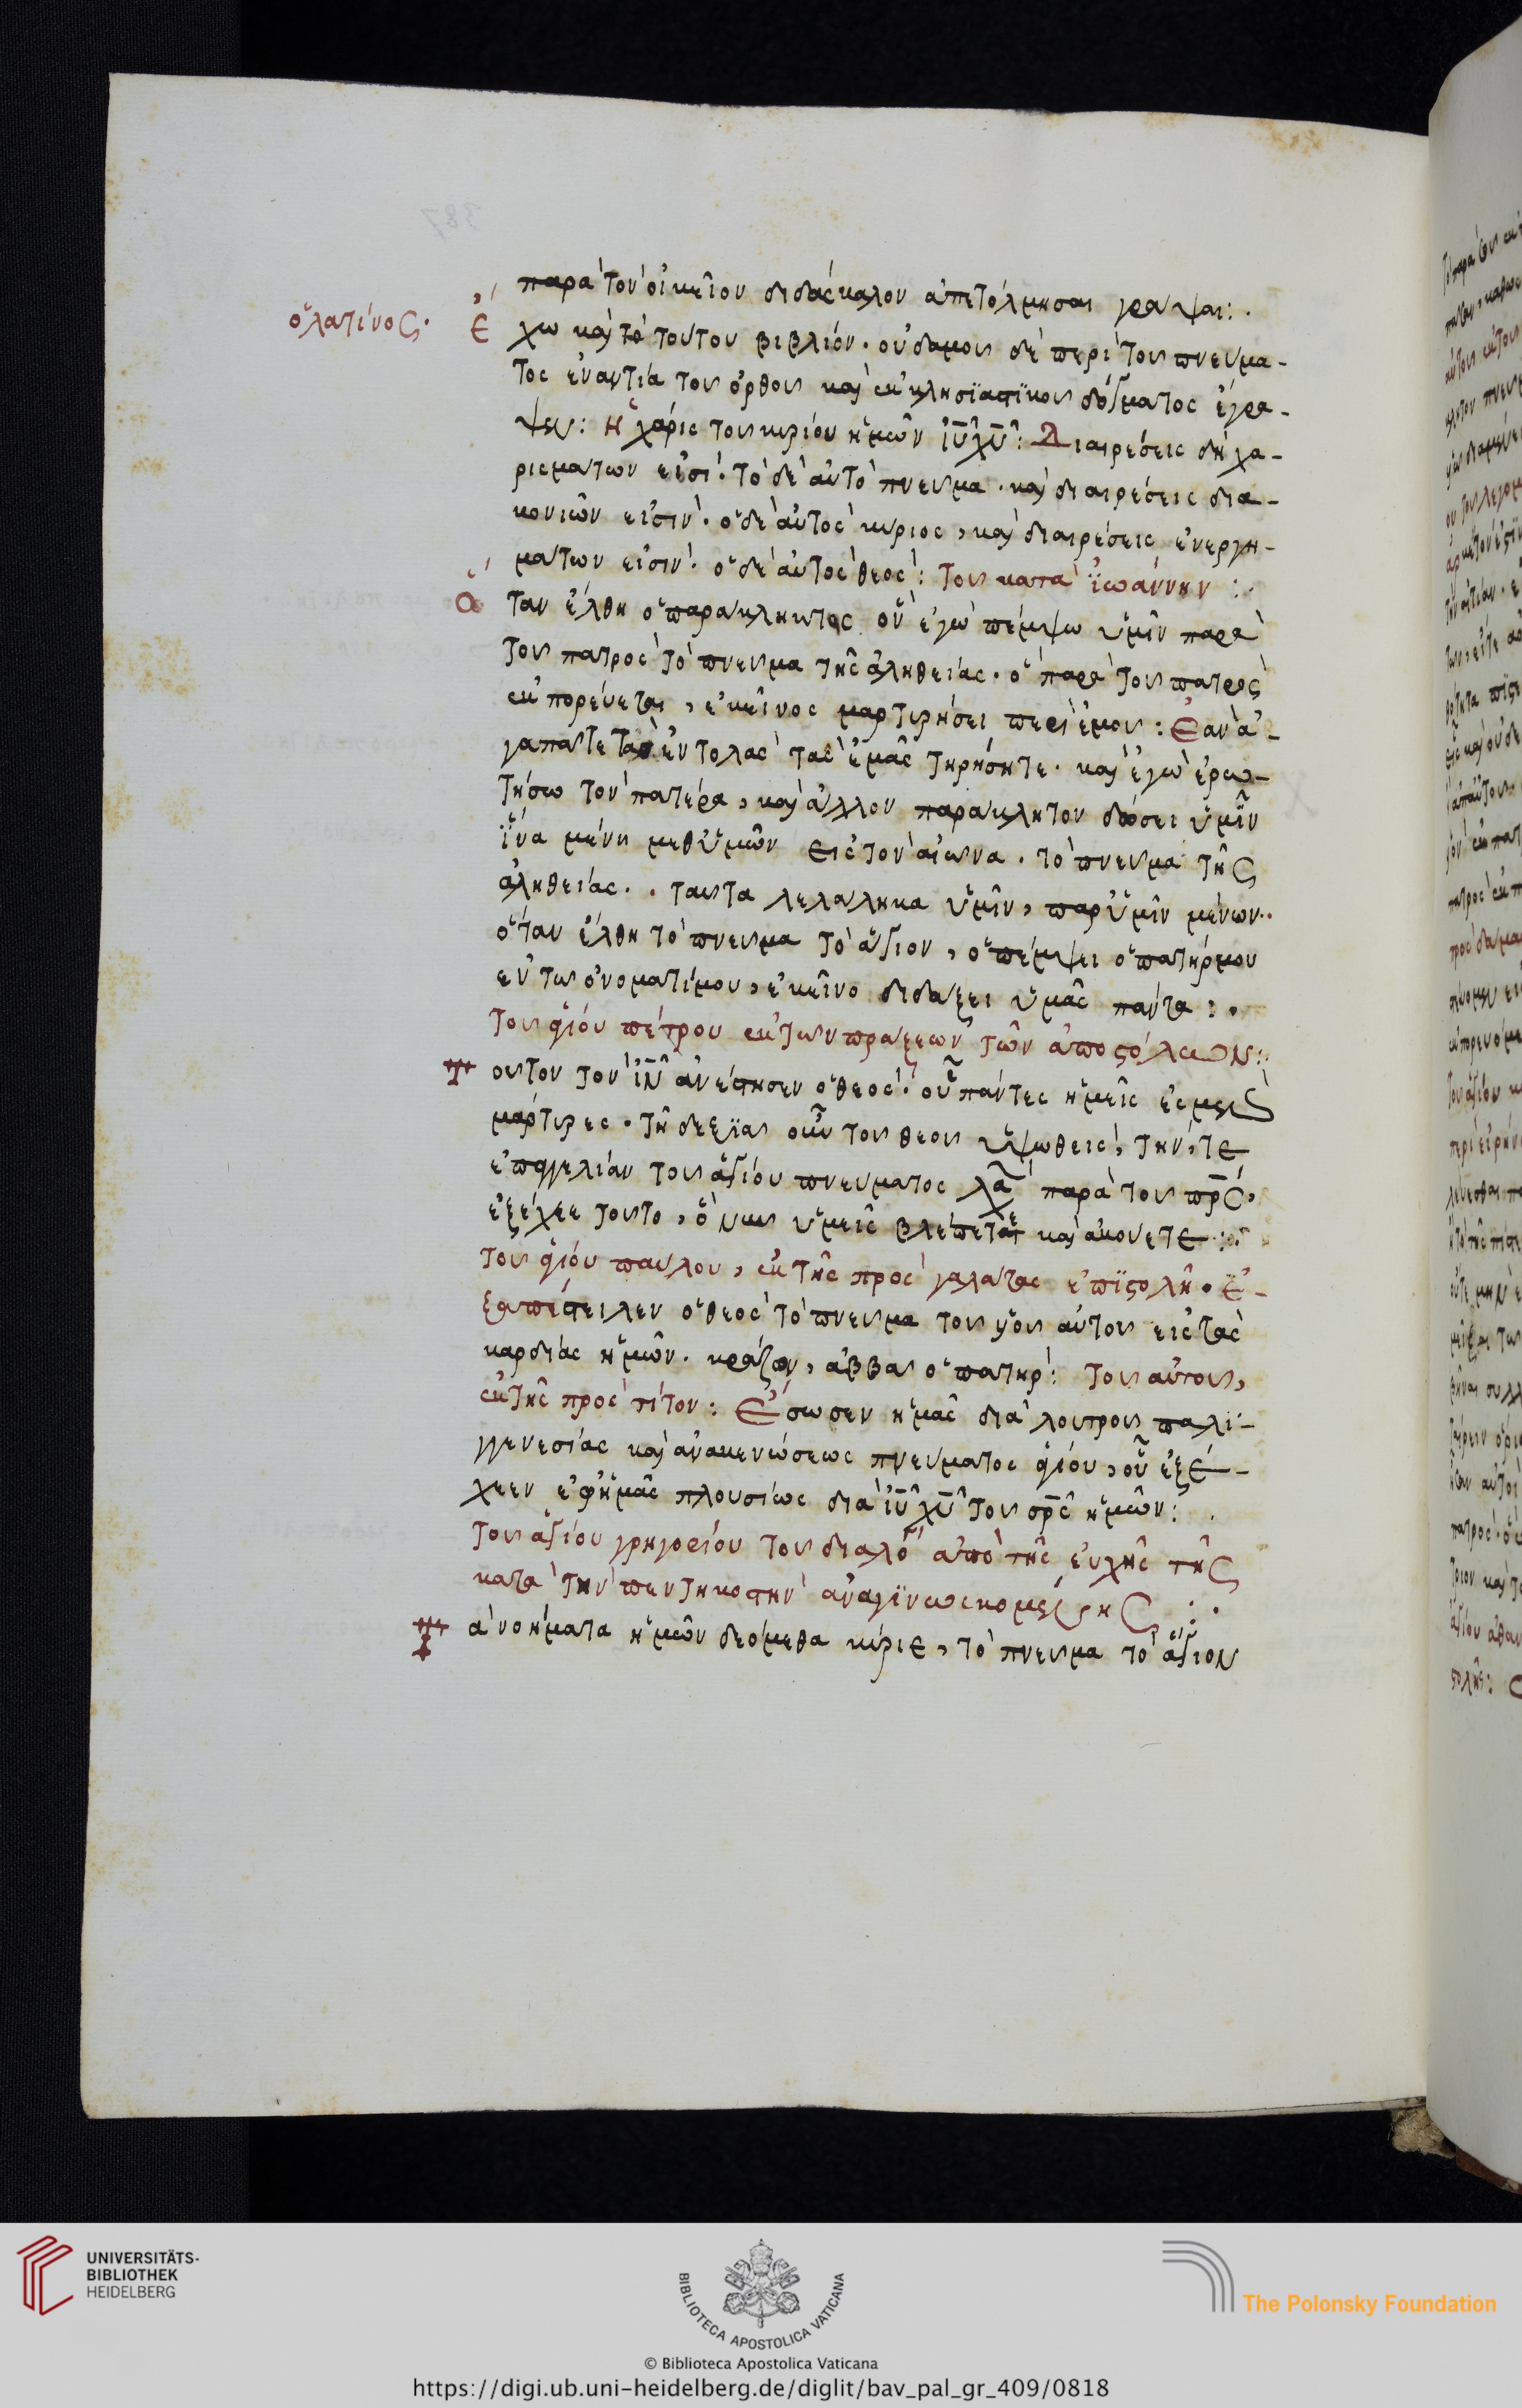 παρὰ τὸν οἰκεῖον διδάσκαλον ἀπετόλμησαι γράψαι:.
ὁ λατίνος. Ἔ
χω καὶ τὸ τούτου βιβλίον. οὐδαμοῦ δὲ περὶ τοῦ πνευμα-
τος ἐναντία τοῦ ὀρθοῦ καὶ ἐκκλησϊαστϊκοῦ δόγματος ἔγρα-
ψεν: Ἡ χάρις τοῦ κυρίου ἡμῶν ἰῡ χῡ: Διαιρέσεις δὴ χα-
ρισμάτων εἰσί. τὸ δὲ αὐτὸ πνεῦμα. καὶ διαιρέσεις δια-
κονιῶν εἰσὶν. ὁ δὲ αὐτὸς κύριος, καὶ διαιρέσεις ἐνεργη-
μάτων εἰσὶν. ὁ δὲ αὐτὸς θεὸς: τοῦ κατὰ ἰωάννην:.
Ὅ ταν ἔλθη ὁ παράκλητος ὃν ἐγὼ πέμψω ὑμῖν παρὰ
τοῦ πατρὸς τὸ πνεῦμα τῆς ἀληθείας. ὃ παρὰ τοῦ πατρὸς
ἐκπορεύεται, ἐκεῖνος μαρτυρήσει περὶ ἐμοῦ: Ἐὰν ἀ-
γαπᾶτε τὰς ἐντολὰς τὰς ἐμὰς τηρήσητε. καὶ ἐγὼ ἐρω-
τήσω τὸν πατέρα, καὶ ἄλλον παράκλητον δώσει ὑμῖν
ἵνα μένη μεθ ὑμῶν εἰς τὸν αἰῶνα. τὸ πνεῦμα τῆς
ἀληθείας.. ταῦτα λελάληκα ὑμῖν, παρ ὑμῖν μένων..
ὅταν ἔλθη τὸ πνεῦμα τὸ ἅγιον, ὃ πέμψει ὁ πατήρ μου
ἐν τῶ ὀνόματί μου, ἐκεῖνο διδάξει ὑμᾶς πάντα:.
τοῦ ἁγίου πέτρου ἐκ τῶν πράξεων τῶν ἀποστόλων:.
Τ οῦτον τὸν ἰν̄ ἀνέστησεν ὁ θεὸς. οὗ πάντες ἡμεῖς ἐσμὲν
μάρτυρες. τῆ δεξϊᾶ οὖν τοῦ θεοῦ ὑψωθεὶς, τήν, τε
ἐπαγγελίαν τοῦ ἁγίου πνεύματος λα παρὰ τοῦ πρ̄ς,
ἐξέχεε τοῦτο, ὃ νῦν ὑμεῖς βλέπετε καὶ ἀκούετε:.
τοῦ ἁγίου παύλου, ἐκ τῆς πρὸς γαλάτας ἐπϊστολῆ. Ἐ-
ξαπέστειλεν ὁ θεὸς τὸ πνεῦμα τοῦ υἱοῦ αὐτοῦ εἰς τὰς
καρδίας ἡμῶν. κράζον, ἀββᾶ ὁ πατὴρ: τοῦ αὐτοῦ,
ἐκ τῆς πρὸς τίτον: Ἔσωσεν ἡμᾶς διὰ λουτροῦ παλι-
γγενεσίας καὶ ἀνακενώσεως πνεύματος ἁγίου, οὗ ἐξέ-
χεεν ἐφ ἡμᾶς πλουσίως διὰ ἰῡ χῡ τοῦ σρ̄ς ἡμῶν:.
τοῦ ἁγίου γρηγορίου τοῦ διαλό ἀπὸ τῆς εὐχῆς τῆς
κατὰ τὴν πεντηκοστὴν ἀναγϊνωσκομένης:.
Τ ὰ νοήματα ἡμῶν δεόμεθα κύριε, τὸ πνεῦμα τὸ ἅγιον
UNIVERSITÄTS-
BIBLIOTHEK
HEIDELBERG
BIBLIOTECA APOSTOLICA VATICANA
The Polonsky Foundation
© Biblioteca Apostolica Vaticana
https://digi.ub.uni-heidelberg.de/diglit/bav_pal_gr_409/0818